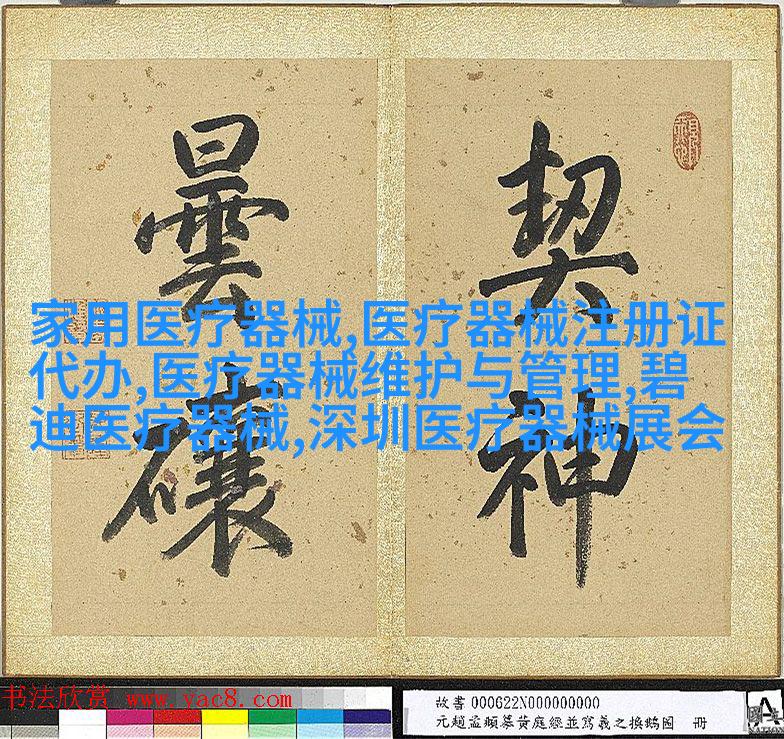 契神
曇礳
家用医疗器械,医疗器械注册证
代办,医疗器械维护与管理,碧
迪医疗器械,深圳医疗器械展会
书法欣赏 www.yac8.com
故書 000622N000000000
元趙孟頫摹黃庭經並寫羲之換鵝圖 冊